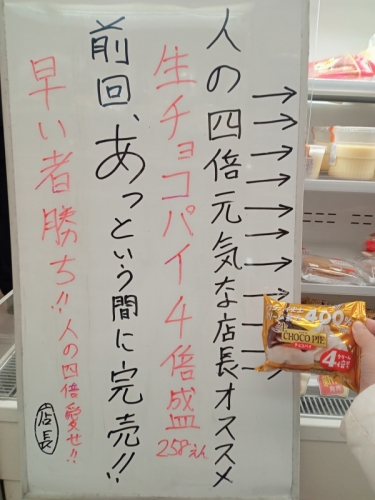 人の四倍元気な店長オススメ
→→→→→→→→→→
生チョコパイ4倍盛
258えん
前回、あっという間に完売!!
早い者勝ち!!人の四倍愛せ!!
店長
400%
CHOCO PIE
チョコパイ
4倍